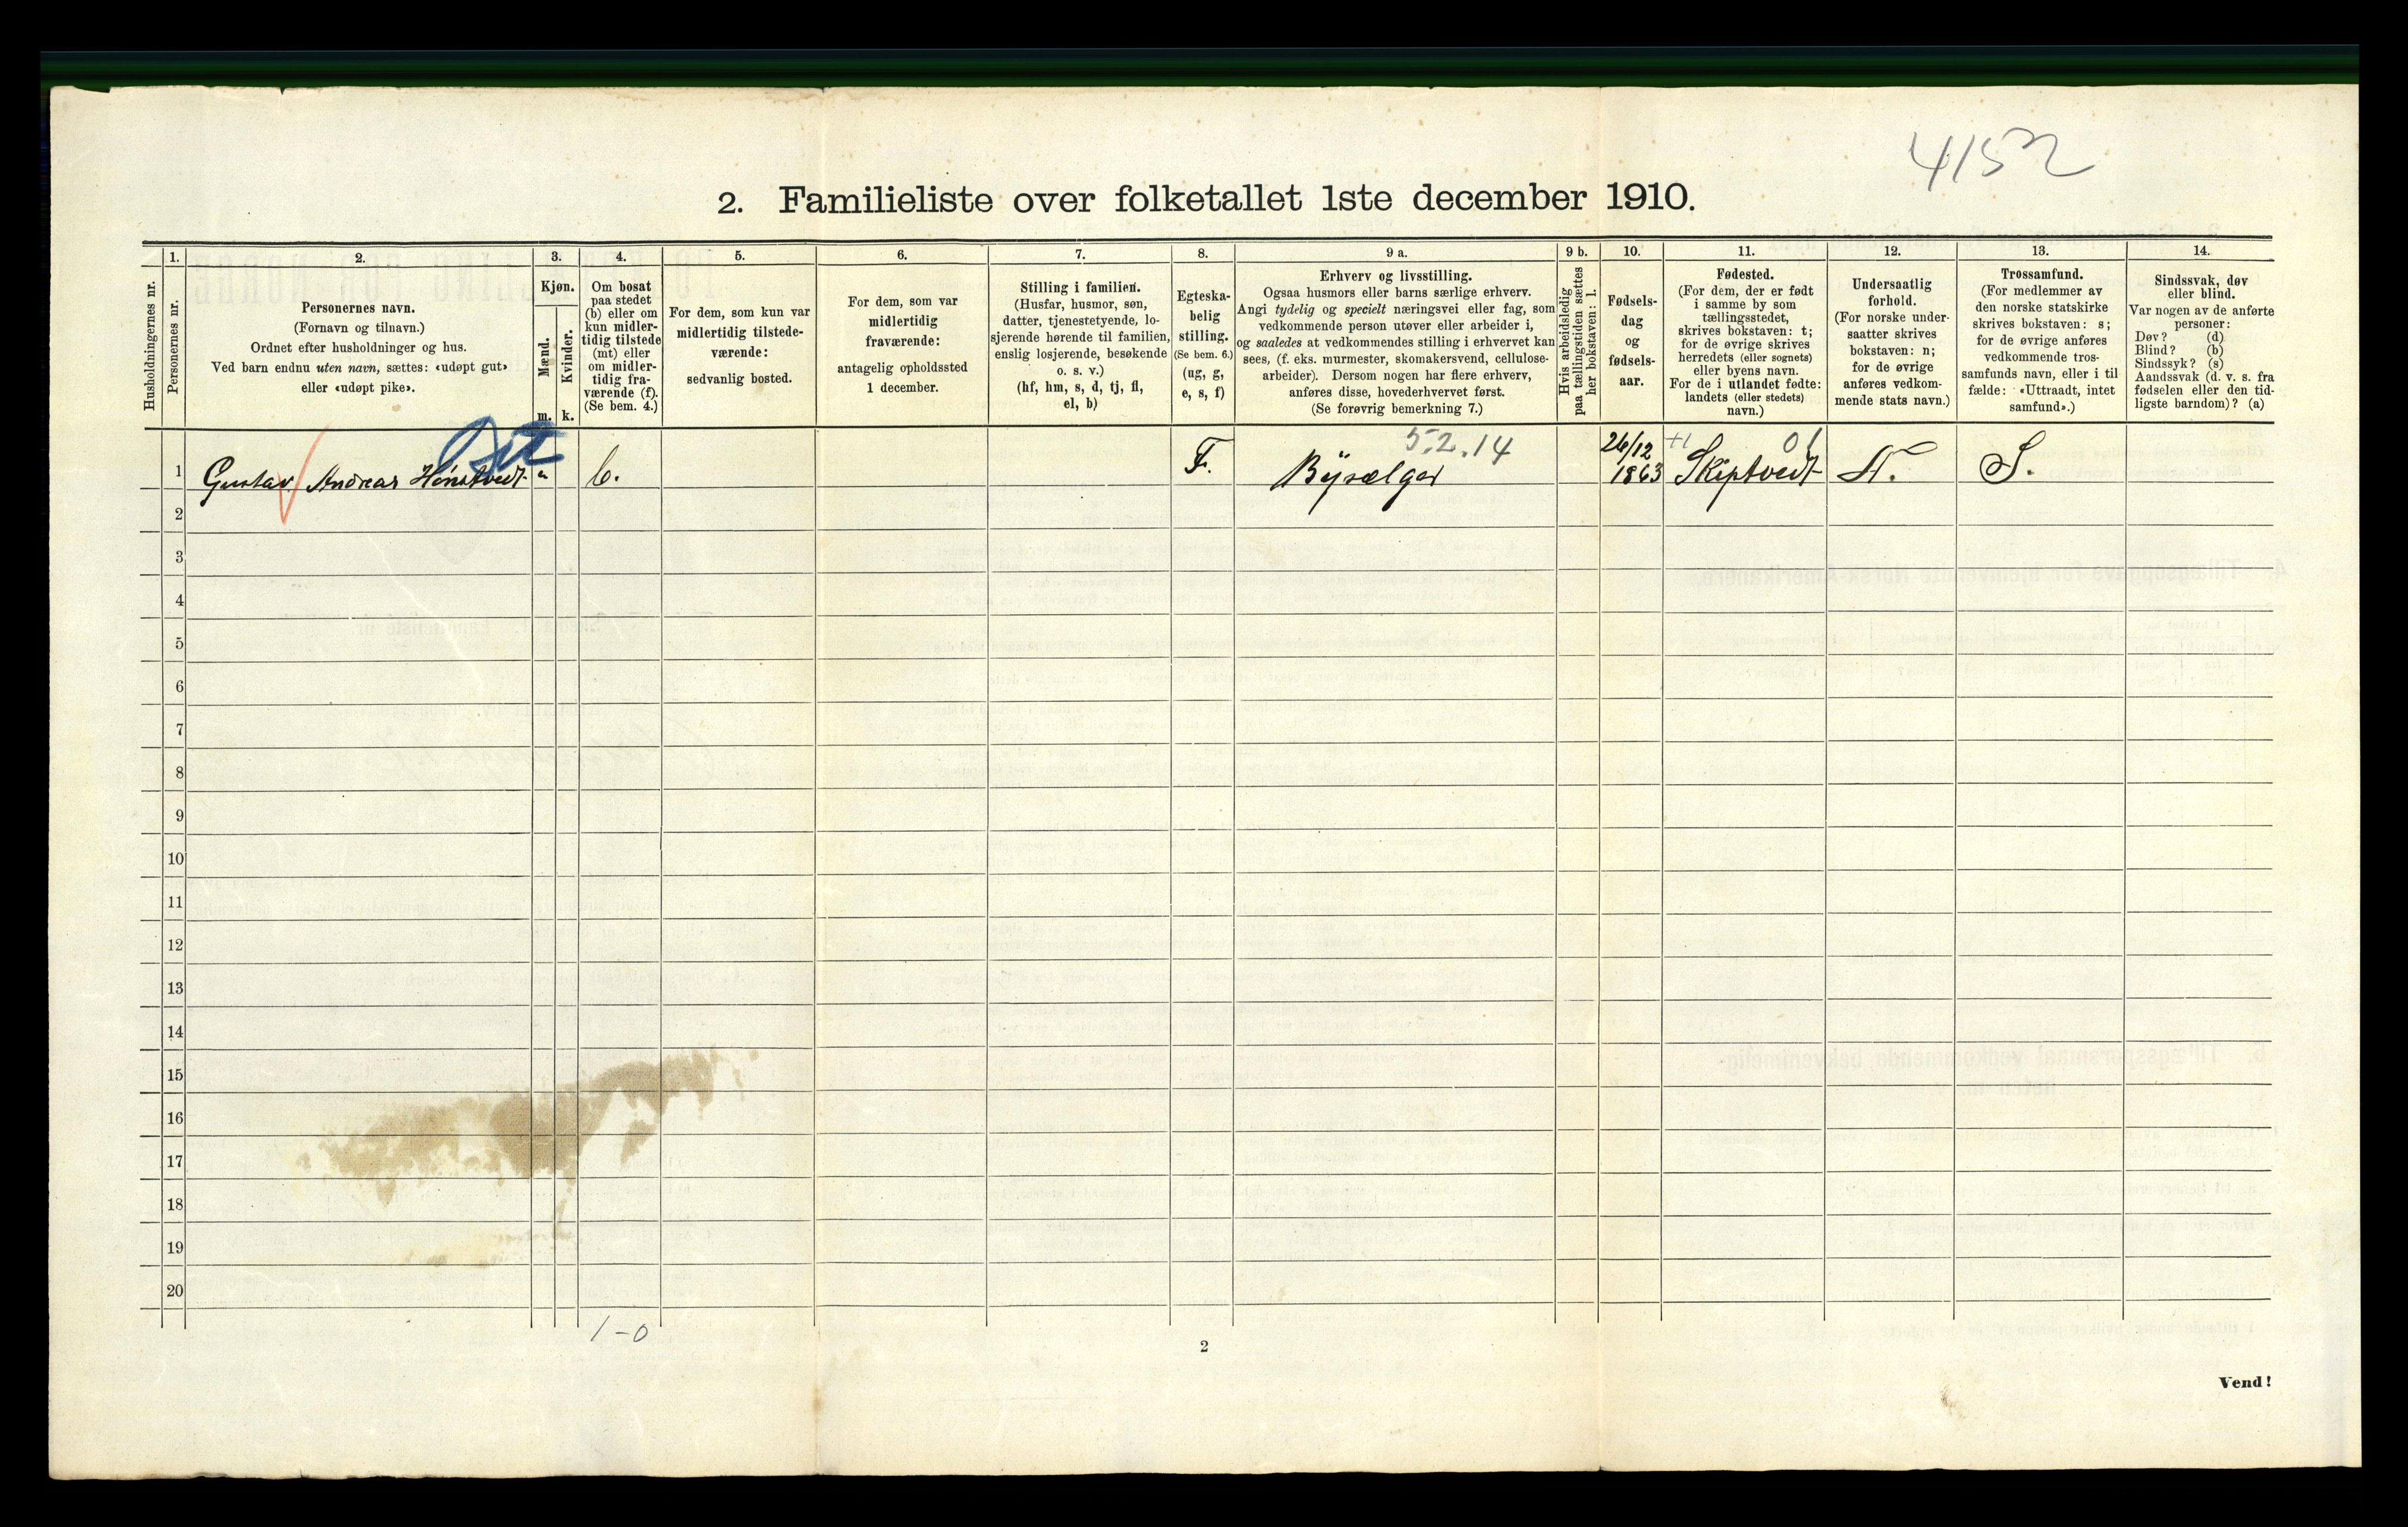 4152
2. Familieliste over folketallet 1ste december 1910.
Husholdningernes nr.
1.
Personernes nr.
2.
Personernes navn.
(Fornavn og tilnavn.)
Ordnet efter husholdninger og hus.
Ved barn endnu uten navn, sættes: «udøpt gut»
eller «udøpt pike».
3.
Kjøn.
Mænd.
Kvinder.
m.
k.
4.
Om bosat
paa stedet
(b) eller om
kun midler-
tidig tilstede
(mt) eller
om midler-
tidig fra-
værende (f).
(Se bem. 4.)
5.
For dem, som kun var
midlertidig tilstede-
værende:
sedvanlig bosted.
6.
For dem, som var
midlertidig
fraværende:
antagelig opholdssted
1 december.
7.
Stilling i familien.
(Husfar, husmor, søn,
datter, tjenestetyende, lo-
sjerende hørende til familien,
enslig losjerende, besøkende
o. s. v.)
(hf, hm, s, d, tj, fl,
el, b)
8.
Egteska-
belig
stilling.
(Se bem. 6.)
(ug, g,
e, s, f)
9 a.
Erhverv og livsstilling.
Ogsaa husmors eller barns særlige erhverv.
Angi tydelig og specielt næringsvei eller fag, som
vedkommende person utøver eller arbeider i,
og saaledes at vedkommendes stilling i erhvervet kan
sees, (f. eks. murmester, skomakersvend, cellulose-
arbeider). Dersom nogen har flere erhverv,
anføres disse, hovederhvervet først.
(Se forøvrig bemerkning 7.)
9 b.
Hvis arbeidsledig
paa tællingstiden sættes
her bokstaven: l.
10.
Fødsels-
dag
og
fødsels-
aar.
11.
Fødested.
(For dem, der er født
i samme by som
tællingsstedet,
skrives bokstaven: t;
for de øvrige skrives
herredets (eller sognets)
eller byens navn.
For de i utlandet fødte:
landets (eller stedets)
navn.)
12.
Undersaatlig
forhold.
(For norske under-
saatter skrives
bokstaven: n;
for de øvrige
anføres vedkom-
mende stats navn.)
13.
Trossamfund.
(For medlemmer av
den norske statskirke
skrives bokstaven: s;
for de øvrige anføres
vedkommende tros-
samfunds navn, eller i til
fælde: «Uttraadt, intet
samfund».)
14.
Sindssvak, døv
eller blind.
Var nogen av de anførte
personer:
Døv? (d)
Blind? (b)
Sindssyk? (s)
Aandssvak (d. v. s. fra
fødselen eller den tid-
ligste barndom)? (a)
5.2.14 26/12 +1 01
1 Gustav Andreas Hönstvedt b. F. Bÿsælger 1863 Skiptvedt N. S.
2
3
4
5
6
7
8
9
10
11
12
13
14
15
16
17
18
19
20
1-0
2
Vend!